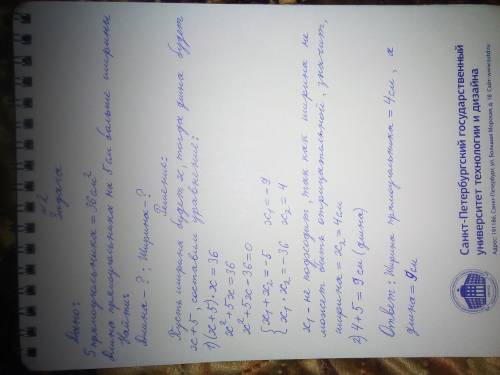 №2
Задача
Дано:
S прямоугольника = 36см²
Длина прямоугольника на 5см больше ширины
Найти:
Длина - ? ; Ширина - ?
Решение:
Пусть ширина будет x, тогда длина будет
x+5, составим уравнение:
1) (x+5)·x=36
x²+5x=36
x²+5x-36=0
{ x₁+x₂=-5 x₁=-9
{ x₁·x₂=-36 x₂=4
x₁ - не подходит, так как ширина не
может быть отрицательной, значит,
ширина = x₂ = 4см
2) 4+5=9см (длина)
Ответ: Ширина прямоугольника = 4см, а
длина = 9см
Санкт-Петербургский государственный
университет технологии и дизайна
Адрес: 191186, Санкт-Петербург, ул. Большая Морская, д. 18. Сайт: www.sutd.ru